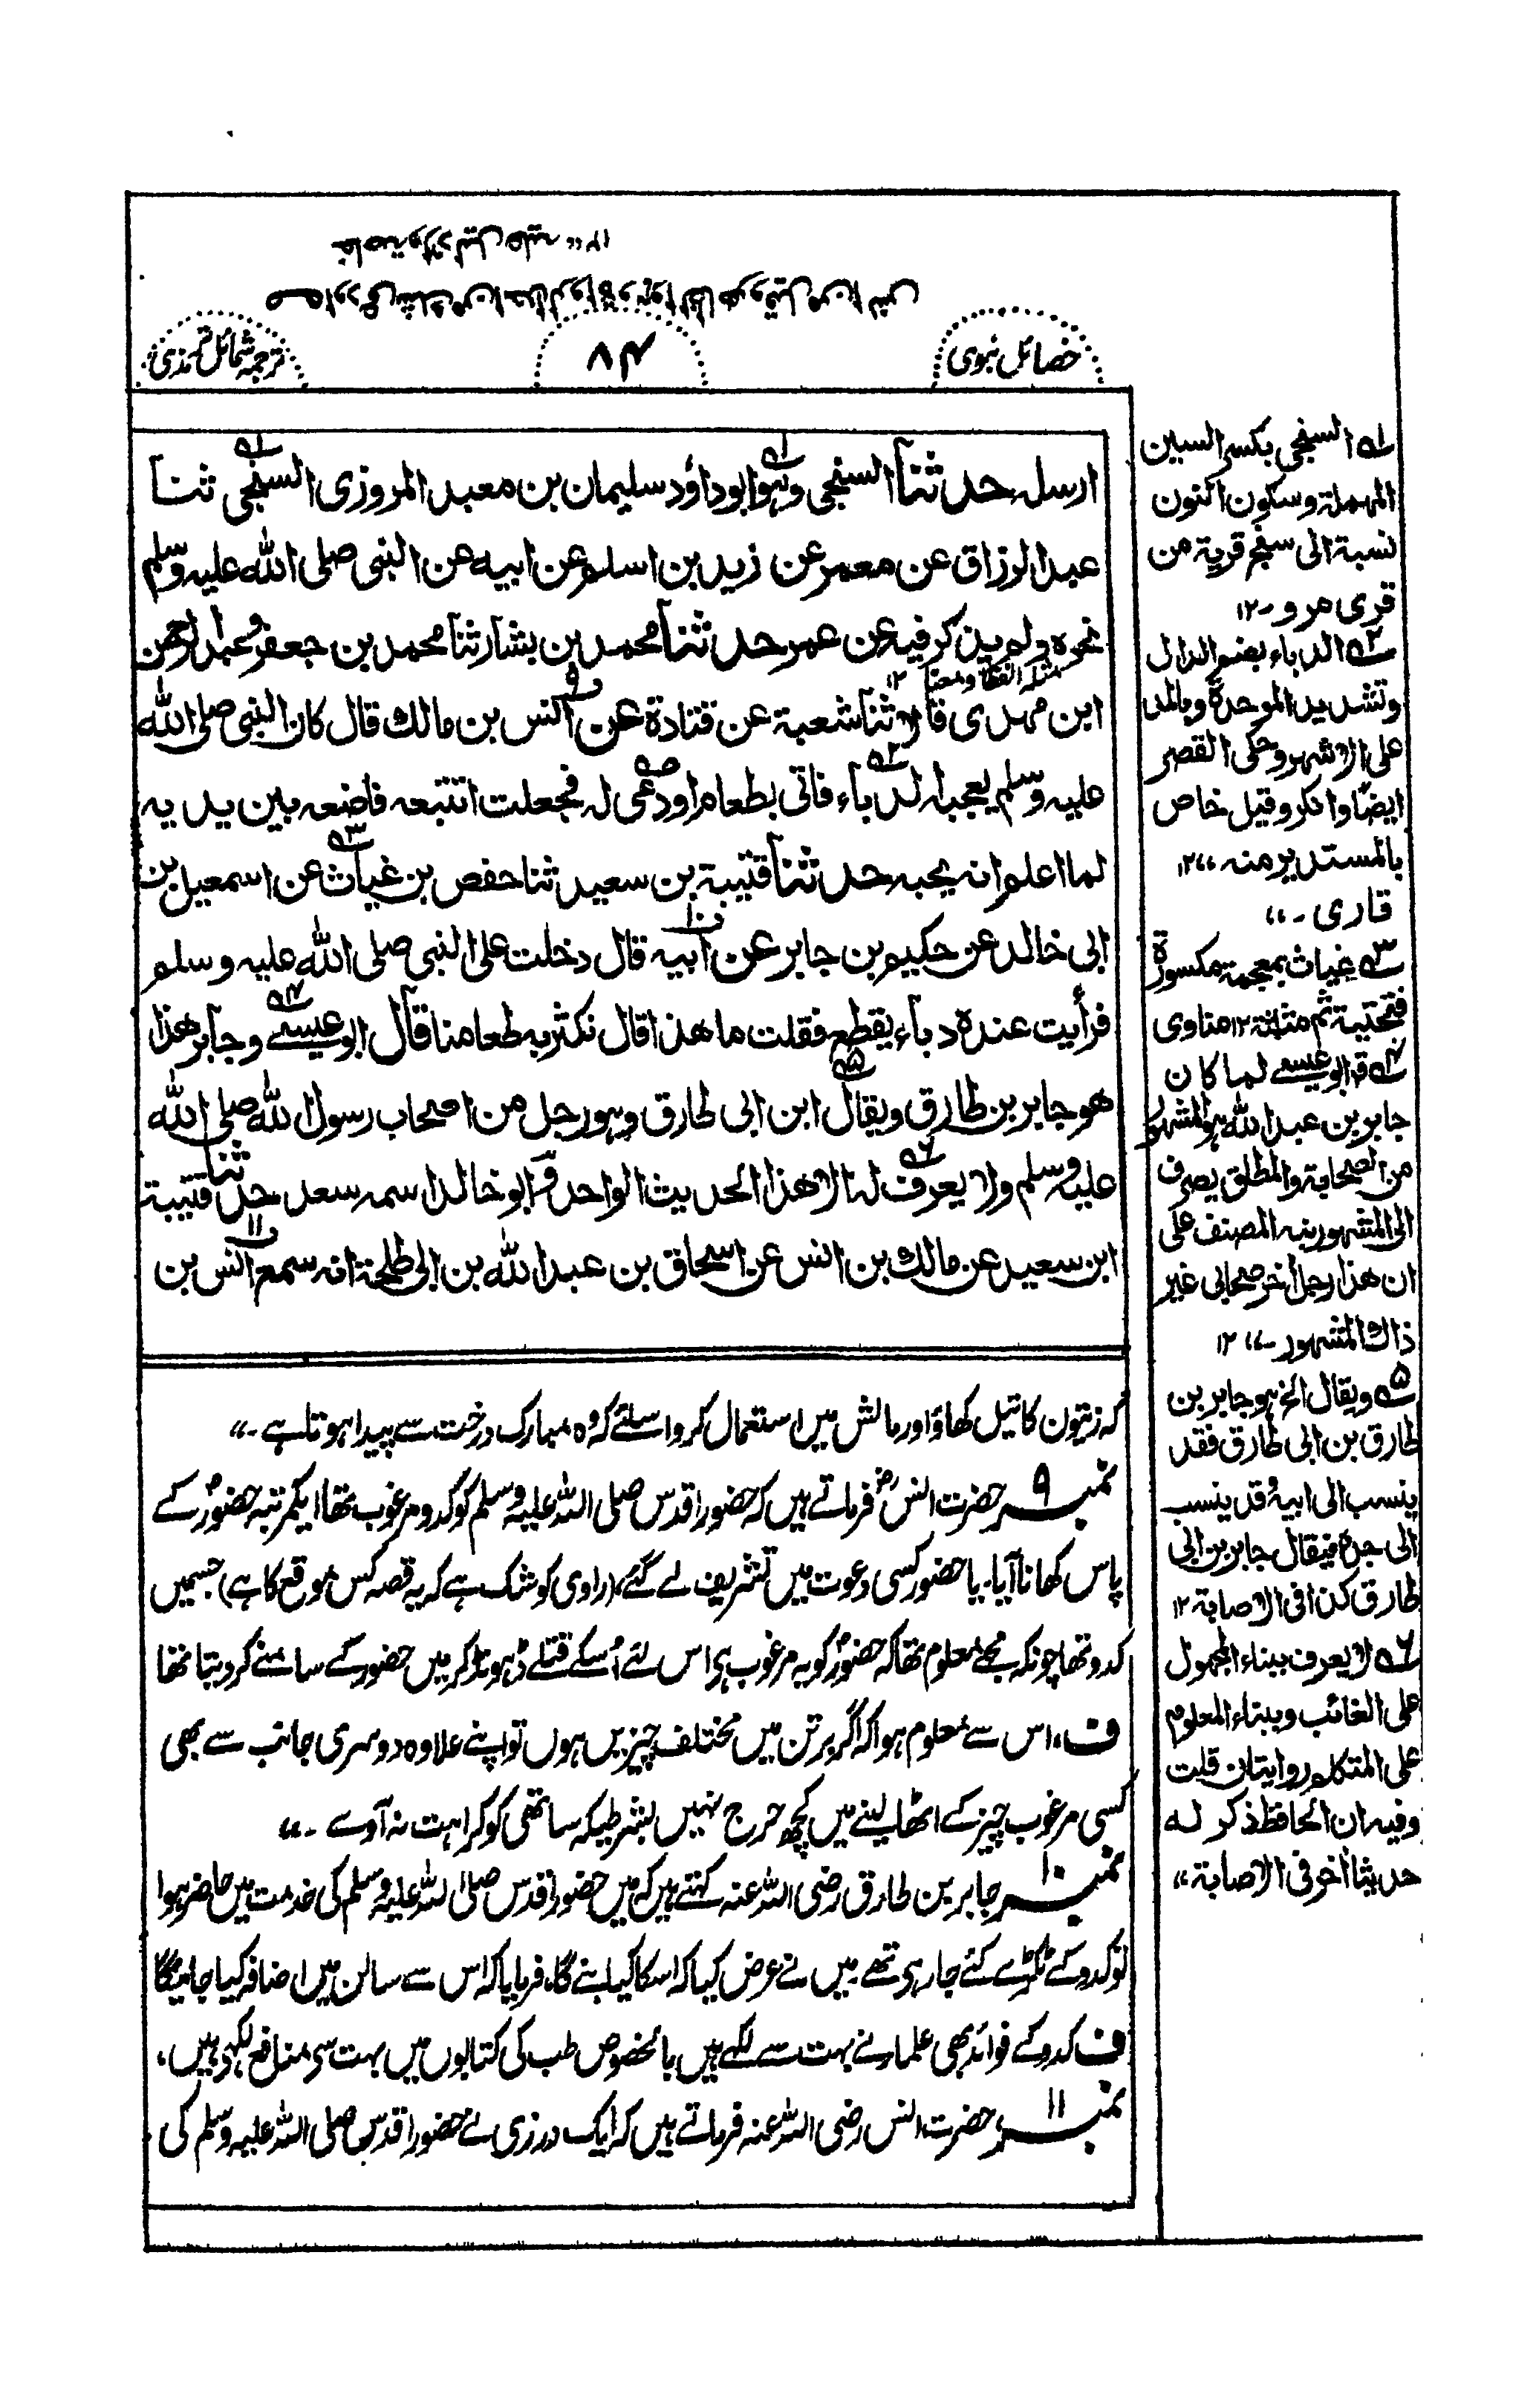 خصائل نبوی
۸۴
ترجمہ شمائل ترمذی
ارسل حدثنا السنجی وہو ابو داؤد سلیمان بن معبد المروزی السنجی ثنا
عبد الرزاق عن معمر عن زید بن اسلم عن ابیہ عن النبی صلی اللہ علیہ وسلم
نحوہ ولم یذکر فیہ عن عمر حدثنا محمد بن بشار ثنا محمد بن جعفر وعبد الرحمن
ابن مہدی قالا ثنا شعبة عن قتادة عن انس بن مالك قال کان النبی صلی اللہ
علیہ وسلم یعجبہ الدباء فاتی بطعام او دعی لہ فجعلت اتتبعہ فاضعہ بین یدیہ
لما اعلم انہ یحبہ حدثنا قتیبة بن سعید ثنا حفص بن غیاث عن اسمعیل بن
ابی خالد عن حکیم بن جابر عن ابیہ قال دخلت علی النبی صلی اللہ علیہ وسلم
فرأیت عندہ دباء یقطع فقلت ما ھذا قال نکثر بہ طعامنا قال ابو عیسے وجابر ھذا
ھو جابر بن طارق ویقال ابن ابی طارق وہو رجل من اصحاب رسول اللہ صلی اللہ
علیہ وسلم ولا یعرف لہ الا ھذا الحدیث الواحد وابو خالد اسمہ سعد حدثنا قتیبة
ابن سعید عن مالك بن انس عن اسحاق بن عبد اللہ بن ابی طلحة انہ سمع انس بن
کہ زیتون کا تیل کھاؤ اور مالش میں استعمال کرو اسلئے کہ وہ مبارک درخت سے پیدا ہوتا ہے ۔،،
نمبر ۹ حضرت انسؓ فرماتے ہیں کہ حضور اقدس صلی اللہ علیہ وسلم کو کدو مرغوب تھا ایکمرتبہ حضورؐ کے
پاس کھانا آیا۔ یا حضور کسی دعوت میں تشریف لے گئے، (راوی کو شک ہے کہ یہ قصہ کس موقع کا ہے) جسمیں
کدو تھا چونکہ مجھے معلوم تھا کہ حضورؐ کو یہ مرغوب ہی اس لئے اُسکے قتلے ڈہونڈ کر میں حضور کے سامنے کر دیتا تھا
ف، اس سے معلوم ہوا کہ اگر برتن میں مختلف چیزیں ہوں تو اپنے علاوہ دوسری جانب سے بھی
کسی مرغوب چیز کے اٹھا لینے میں کچھ حرج نہیں بشرطیکہ ساتھی کو کراہت نہ آوے ۔،،
نمبر ۱۰ جابر بن طارق رضی اللہ عنہ کہتے ہیں کہ میں حضور اقدس صلی اللہ علیہ وسلم کی خدمت میں حاضر ہوا
تو کدو کے ٹکڑے کئے جا رہی تھے میں نے عرض کیا کہ اسکا کیا بنے گا، فرمایا کہ اس سے سالن میں اضافہ کیا جائیگا
ف کدو کے فوائد بھی علماء نے بہت سے لکہے ہیں بالخصوص طب کی کتابوں میں بہت سی منافع لکہی ہیں،
نمبر ۱۱، حضرت انس رضی اللہ عنہ فرماتے ہیں کہ ایک درزی نے حضور اقدس صلی اللہ علیہ وسلم کی
۱ھ السنجی بکسر السین
المہملة وسکون النون
نسبة الی سنج قریة من
قری مرو ۔۱۲
۲ھ الدباء بضم الدال
وتشدید الموحدة وبالمد
علی الاشہر وحکی القصر
ایضًا وانکر وقیل خاص
بالمستدیر منہ ،،۱۲
قاری ۔،،
۳ھ غیاث بمعجمة مکسورة
فتحتیة ثم مثلثة ۱۲ مناوی
۴ھ ق ابو عیسے لما کان
جابر بن عبد اللہ ہو المشہور
من الصحابة والمطلق یصرف
الی المشہور نبہ المصنف علی
ان ھذا رجل اٰخر صحابی غیر
ذاك المشہور ۔،، ۱۲
۵ھ ویقال الخ ہو جابر بن
طارق بن ابی طارق فقد
ینسب الی ابیہ وقد ینسب
الی جدہ فیقال جابر بن ابی
طارق کذا فی الاصابة ۱۲
۶ھ لا یعرف ببناء المجہول
علی الغائب وببناء المعلوم
علی المتکلم روایتان قلت
وفیہ ان الحافظ ذکر لہ
حدیثا اٰخر فی الاصابة ،،